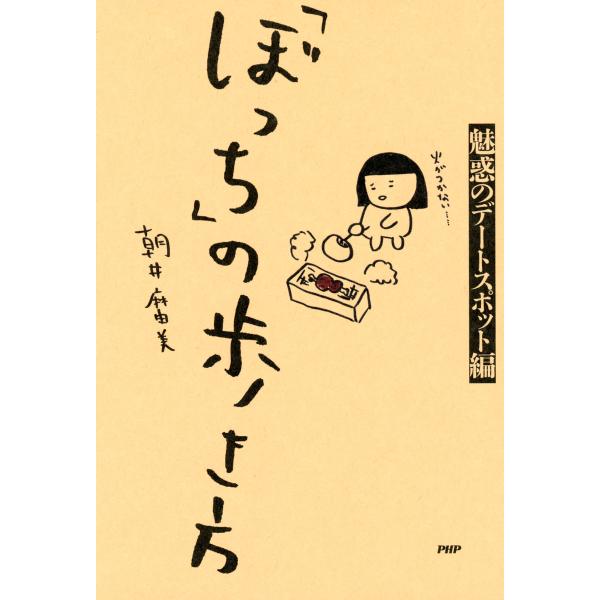 魅惑のデートスポット編
「ぼっち」の歩き方
朝井麻由美
火がつかない……
PHP